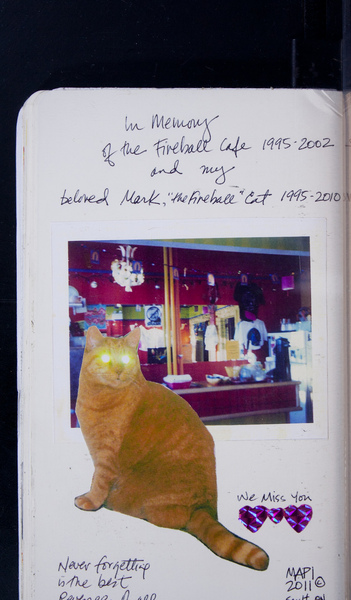 In Memory
of the Fireball Cafe 1995-2002
and my
beloved Mark, "the Fireball" Cat 1995-2010
We Miss You
Never forgetting
is the best
MAPI
2011©